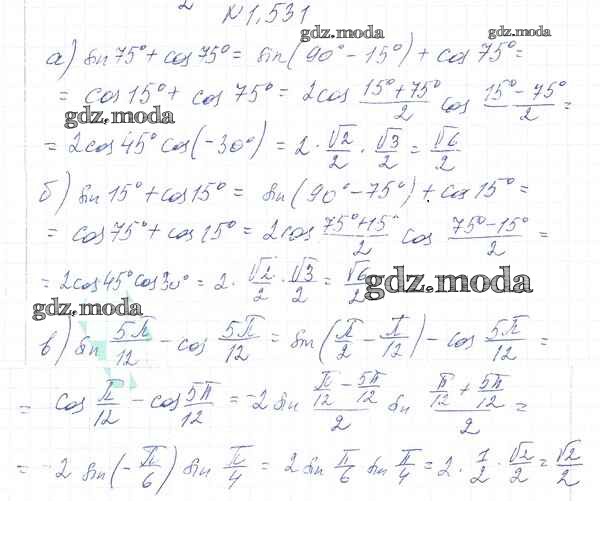 №1,531
gdz.moda
а) sin 75° + cos 75° = sin(90° − 15°) + cos 75° =
= cos 15° + cos 75° = 2cos (15° + 75°)/2 cos (15° − 75°)/2 =
gdz.moda
= 2cos 45° cos(−30°) = 2 · √2/2 · √3/2 = √6/2
б) sin 15° + cos 15° = sin(90° − 75°) + cos 15° =
= cos 75° + cos 15° = 2cos (75° + 15°)/2 cos (75° − 15°)/2 =
= 2cos 45° cos 30° = 2 · √2/2 · √3/2 = √6/2
gdz.moda
gdz.moda
в) sin 5π/12 − cos 5π/12 = sin(π/2 − π/12) − cos 5π/12 =
= cos π/12 − cos 5π/12 = −2 sin (π/12 − 5π/12)/2 sin (π/12 + 5π/12)/2 =
= −2 sin(−π/6) sin π/4 = 2 sin π/6 sin π/4 = 2 · 1/2 · √2/2 = √2/2